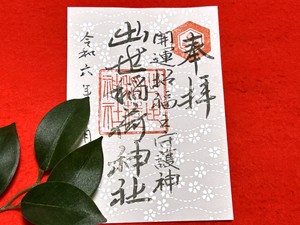 奉拝
開運招福の守護神
出世稲荷神社
令和六年 月